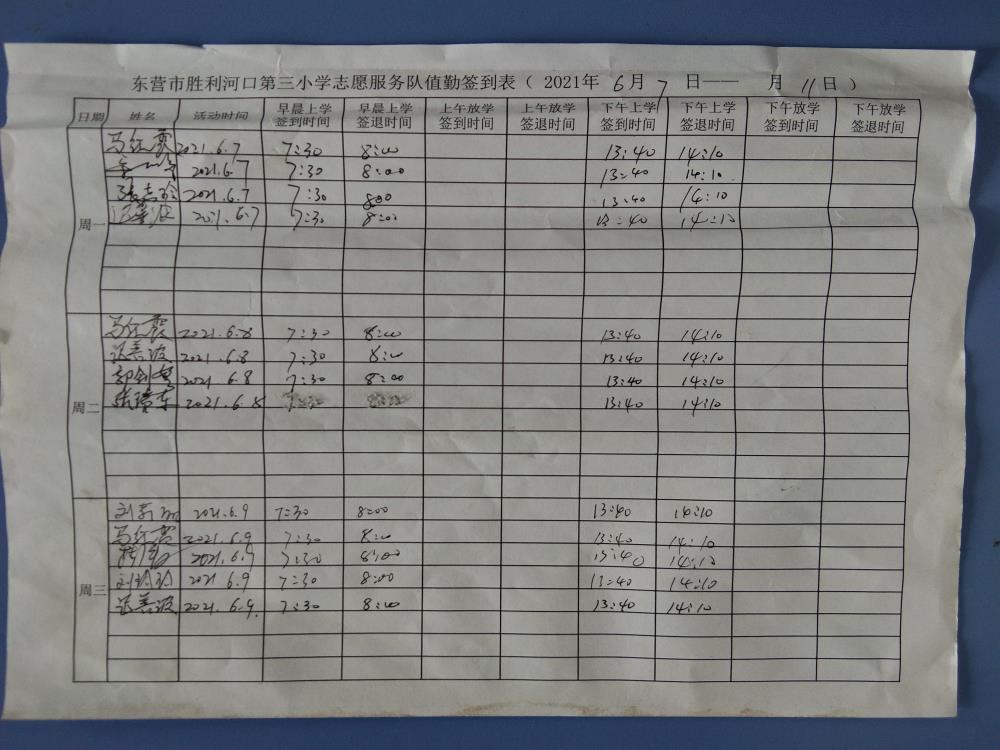 东营市胜利河口第三小学志愿服务队值勤签到表（ 2021年 6月 7 日—— 月 11日 ）
日期 姓名 活动时间 早晨上学签到时间 早晨上学签退时间 上午放学签到时间 上午放学签退时间 下午上学签到时间 下午上学签退时间 下午放学签到时间 下午放学签退时间
2021.6.7 7:30 8:00 13:40 14:10
2021.6.7 7:30 8:00 13:40 14:10
2021.6.7 7:30 800 13:40 14:10
2021.6.7 7:30 8:00 13:40 14:10
周一
2021.6.8 7:30 8:00 13:40 14:10
2021.6.8 7:30 8:00 13:40 14:10
2021 6.8 7:30 8:00 13:40 14:10
2021.6.8 7:30 13:40 14:10
周二
2021.6.9 7:30 8:00 13:40 14:10
2021.6.9 7:30 8:00 13:40 14:10
2021.6.9 7:30 8:00 13:40 14:10
刘玲玲 2021 6.9 7:30 8:00 13:40 14:10
周三
2021.6.9. 7:30 8:00 13:40 14:10